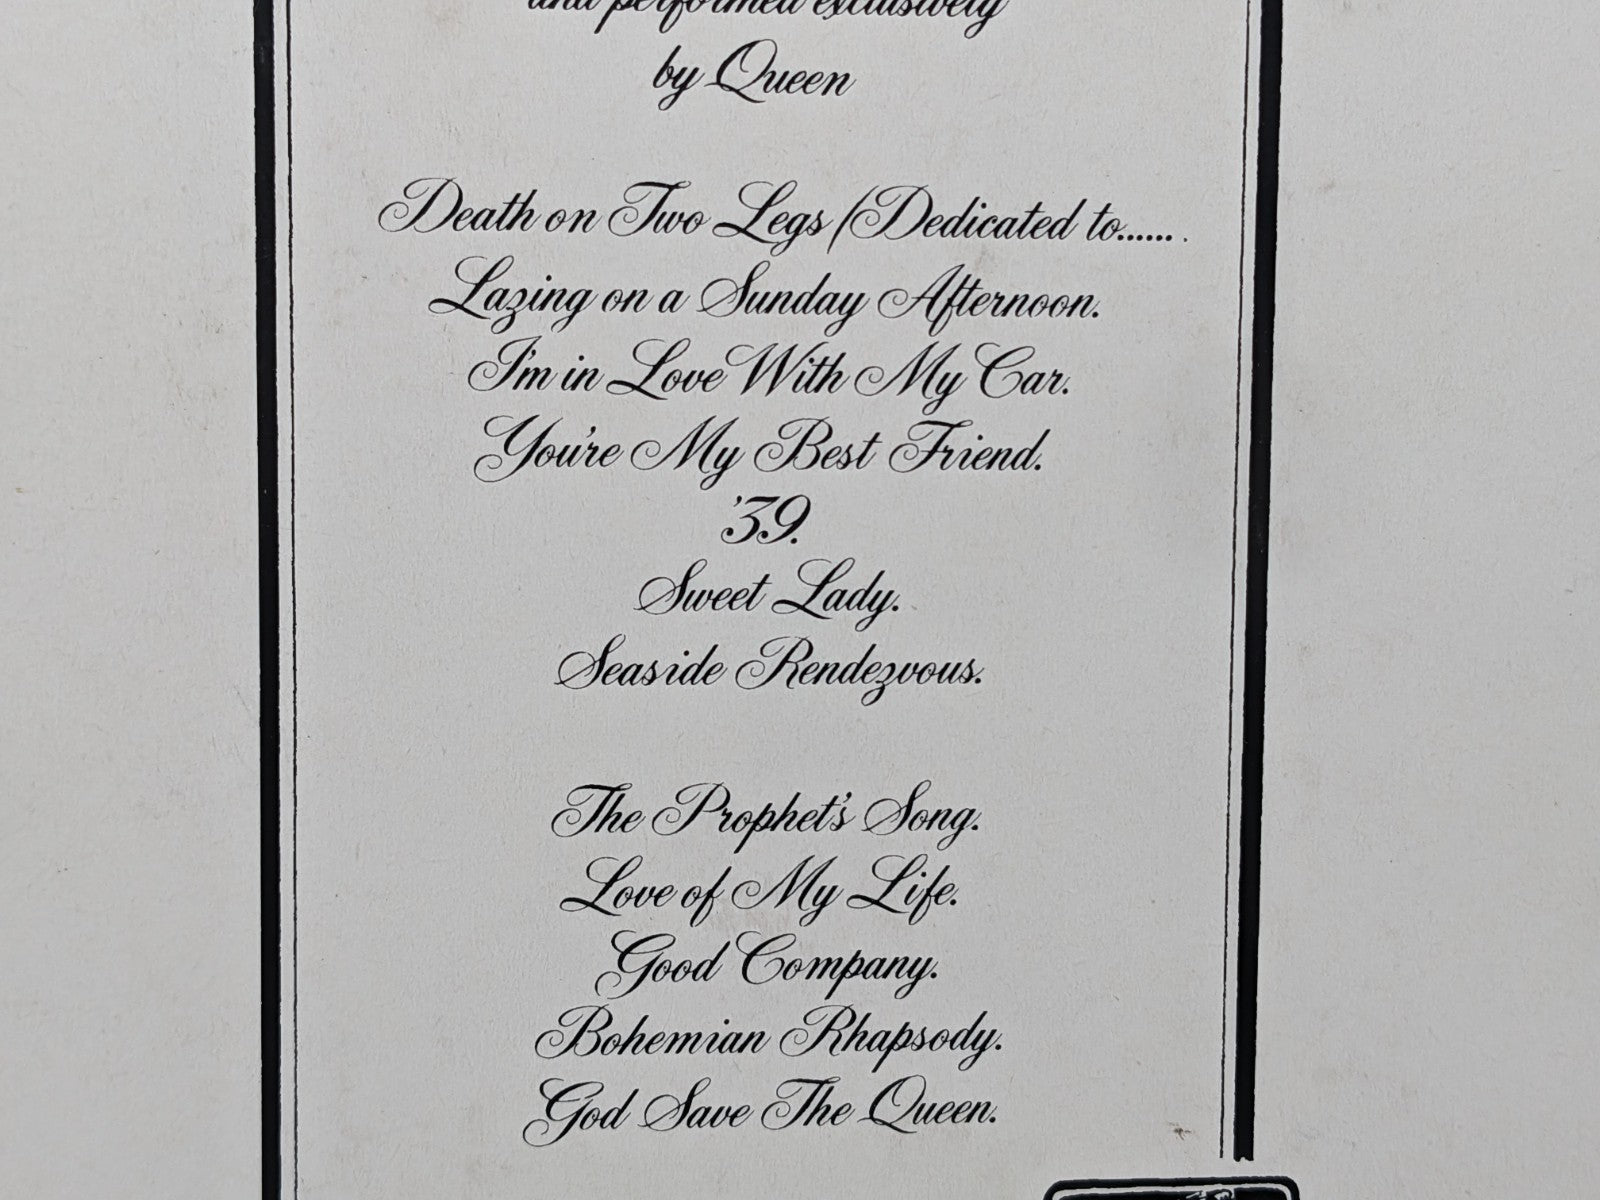 and performed exclusively
by Queen
Death on Two Legs (Dedicated to.......
Lazing on a Sunday Afternoon.
I'm in Love With My Car.
You're My Best Friend.
'39.
Sweet Lady.
Seaside Rendezvous.
The Prophet's Song.
Love of My Life.
Good Company.
Bohemian Rhapsody.
God Save The Queen.